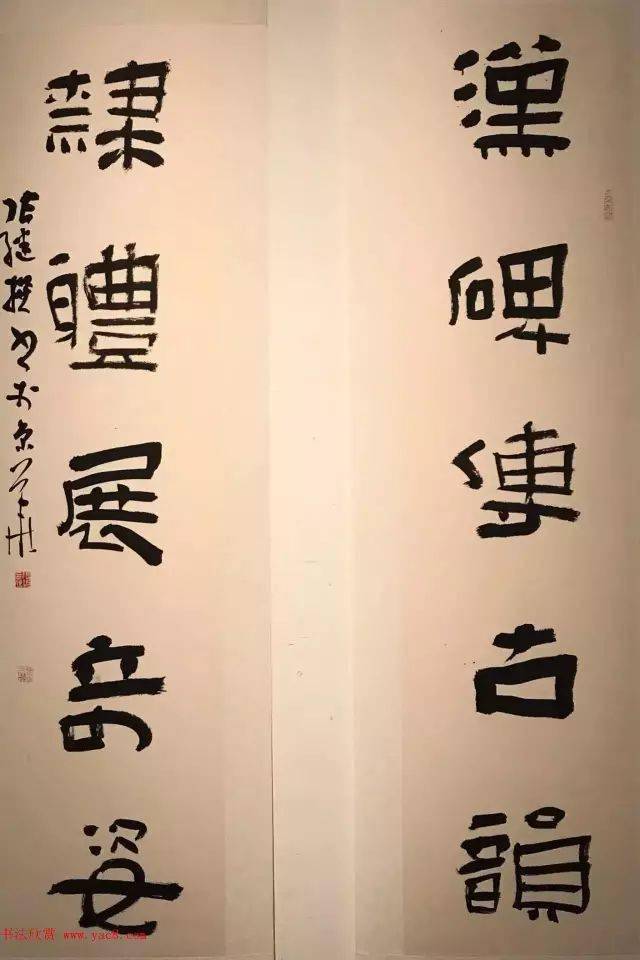 漢碑傳古韻
隸體展奇姿
张继撰书于京华
书法欣赏 www.yac8.com